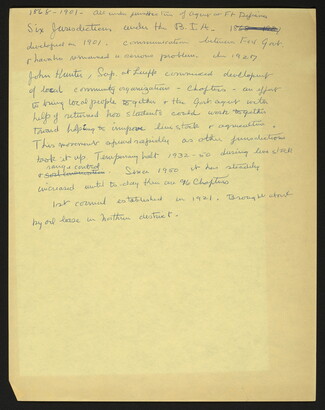 1868-1901. All under jurisdiction of Agent at Ft. Defiance
Six Jurisdictions under the B.I.A.
developed in 1901. communication between Fed Govt.
& Navahos remained a serious problem. In 1927
John Hunter, Sup. at Leupp commenced development
of local community organizations - Chapters - an effort
to bring local people together & the Govt agent with
help of returned students could work together
toward helping to improve livestock & agriculture.
This movement spread rapidly as other jurisdictions
took it up. Temporary halt 1932-50 during livestock
control. Since 1950 it has steadily
increased until today there are 96 Chapters
1st council established in 1921. Brought about
by oil lease in Northern district.